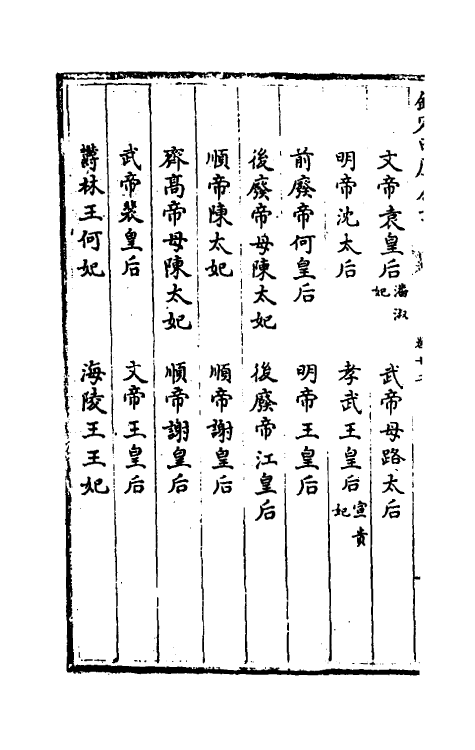 文帝袁皇后潘淑妃　武帝母路太后
明帝沈太后　孝武王皇后宣貴妃
前廢帝何皇后　明帝王皇后
後廢帝母陳太妃　後廢帝江皇后
順帝陳太妃　順帝謝皇后
齊高帝母陳太妃　順帝謝皇后
武帝裴皇后　文帝王皇后
欝林王何妃　海陵王王妃